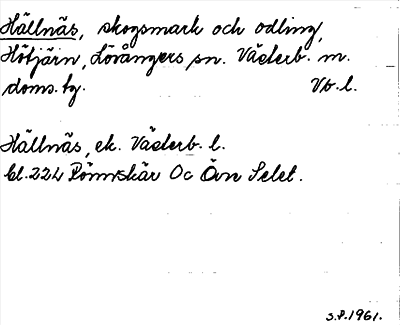 Hällnäs, skogsmark och odling,
Hötjärn, Lövångers sn. Västerb. m.
doms. tg. Vb. l.
Hällnäs, ek. Västerb. l.
bl. 224 Rönnskär Oc Örn Selet.
S.P. 1961.